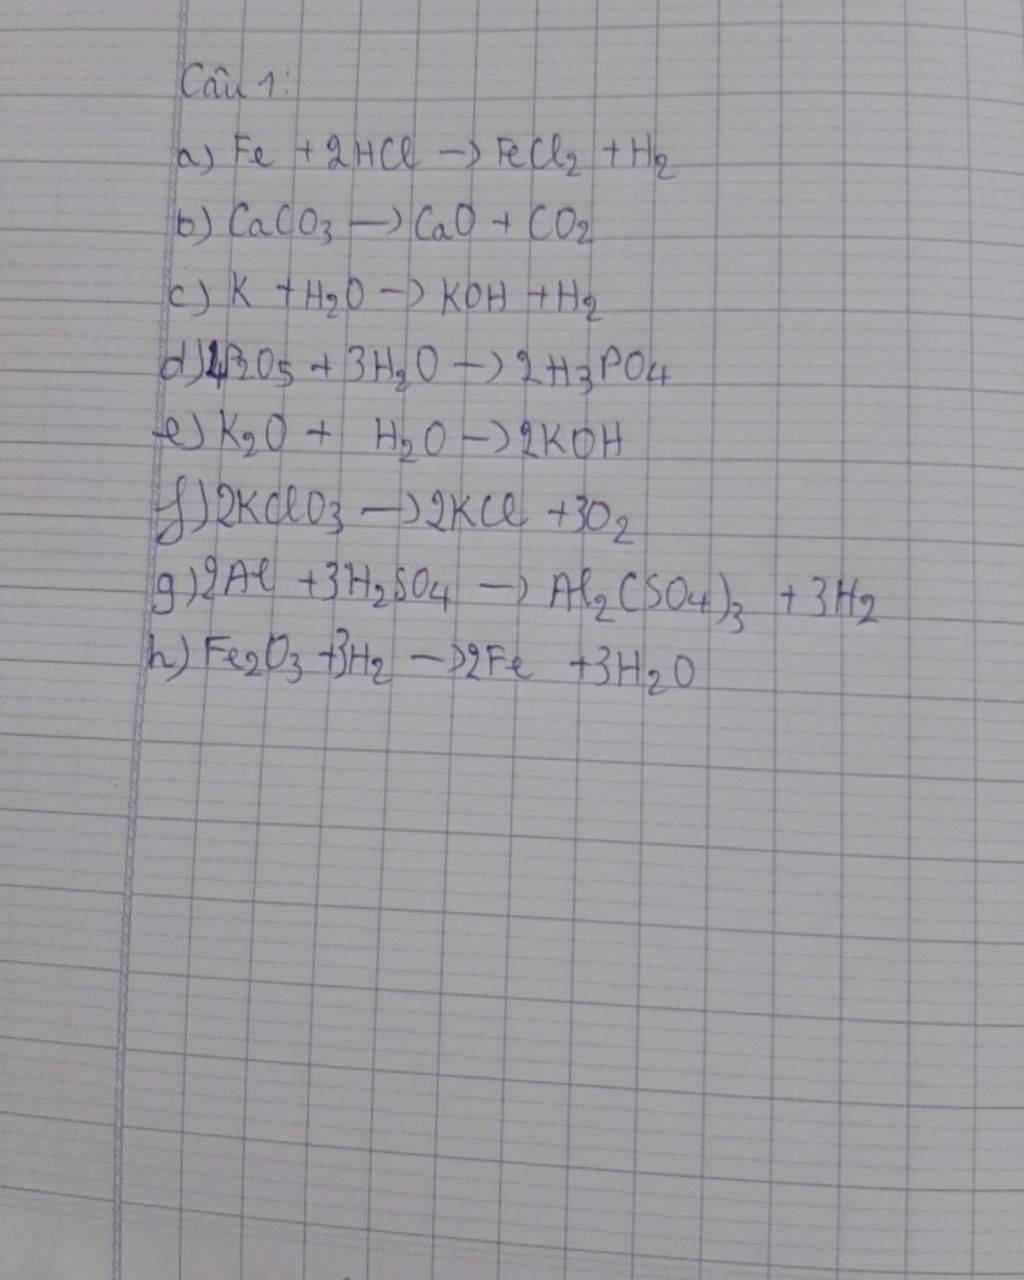 Câu 1:
a) Fe + 2HCl -> FeCl2 + H2
b) CaCO3 -> CaO + CO2
c) K + H2O -> KOH + H2
d) + 3H2O -> 2H3PO4
e) K2O + H2O -> 2KOH
f) 2KClO3 -> 2KCl + 3O2
g) 2Al + 3H2SO4 -> Al2(SO4)3 + 3H2
h) Fe2O3 + 3H2 -> 2Fe + 3H2O